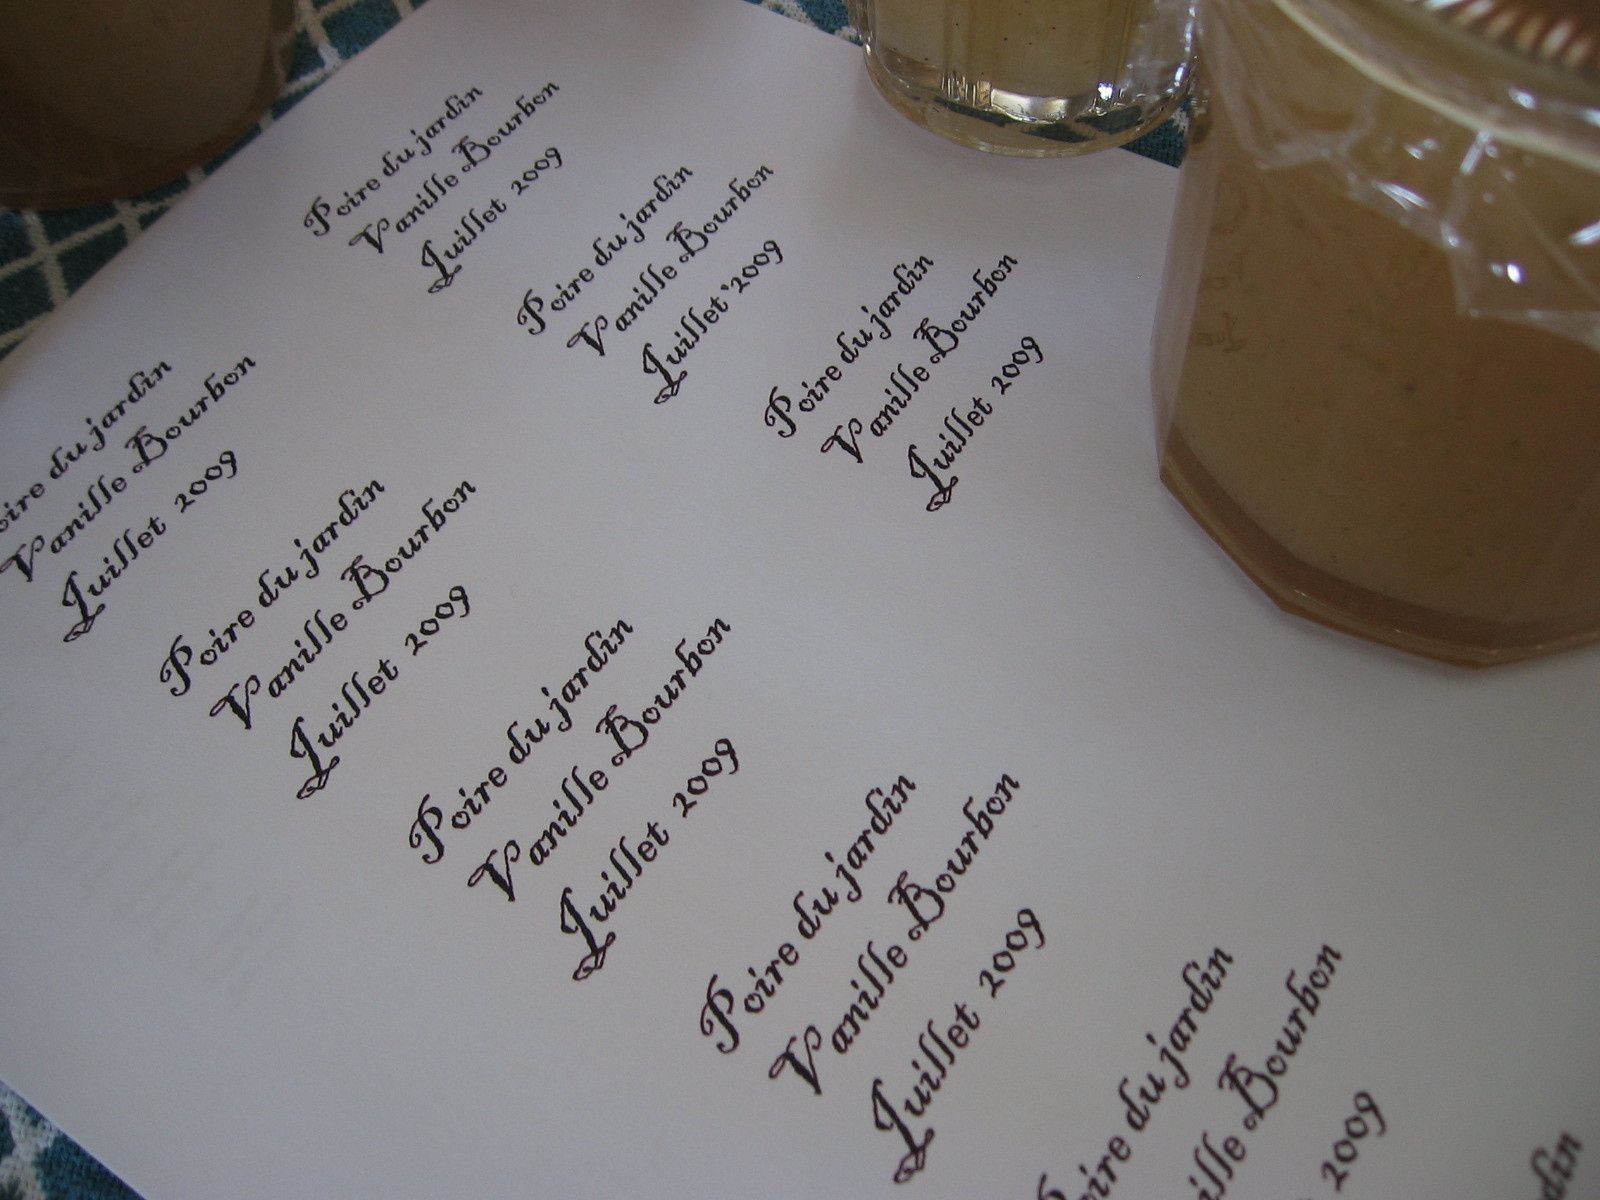 Poire du jardin
Vanille Bourbon
Juillet 2009
Poire du jardin
Vanille Bourbon
Juillet 2009
Poire du jardin
Vanille Bourbon
Juillet 2009
oire du jardin
Vanille Bourbon
Juillet 2009
Poire du jardin
Vanille Bourbon
Juillet 2009
Poire du jardin
Vanille Bourbon
Juillet 2009
Poire du jardin
Vanille Bourbon
Juillet 2009
oire du jardin
ille Bourbon
2009
din